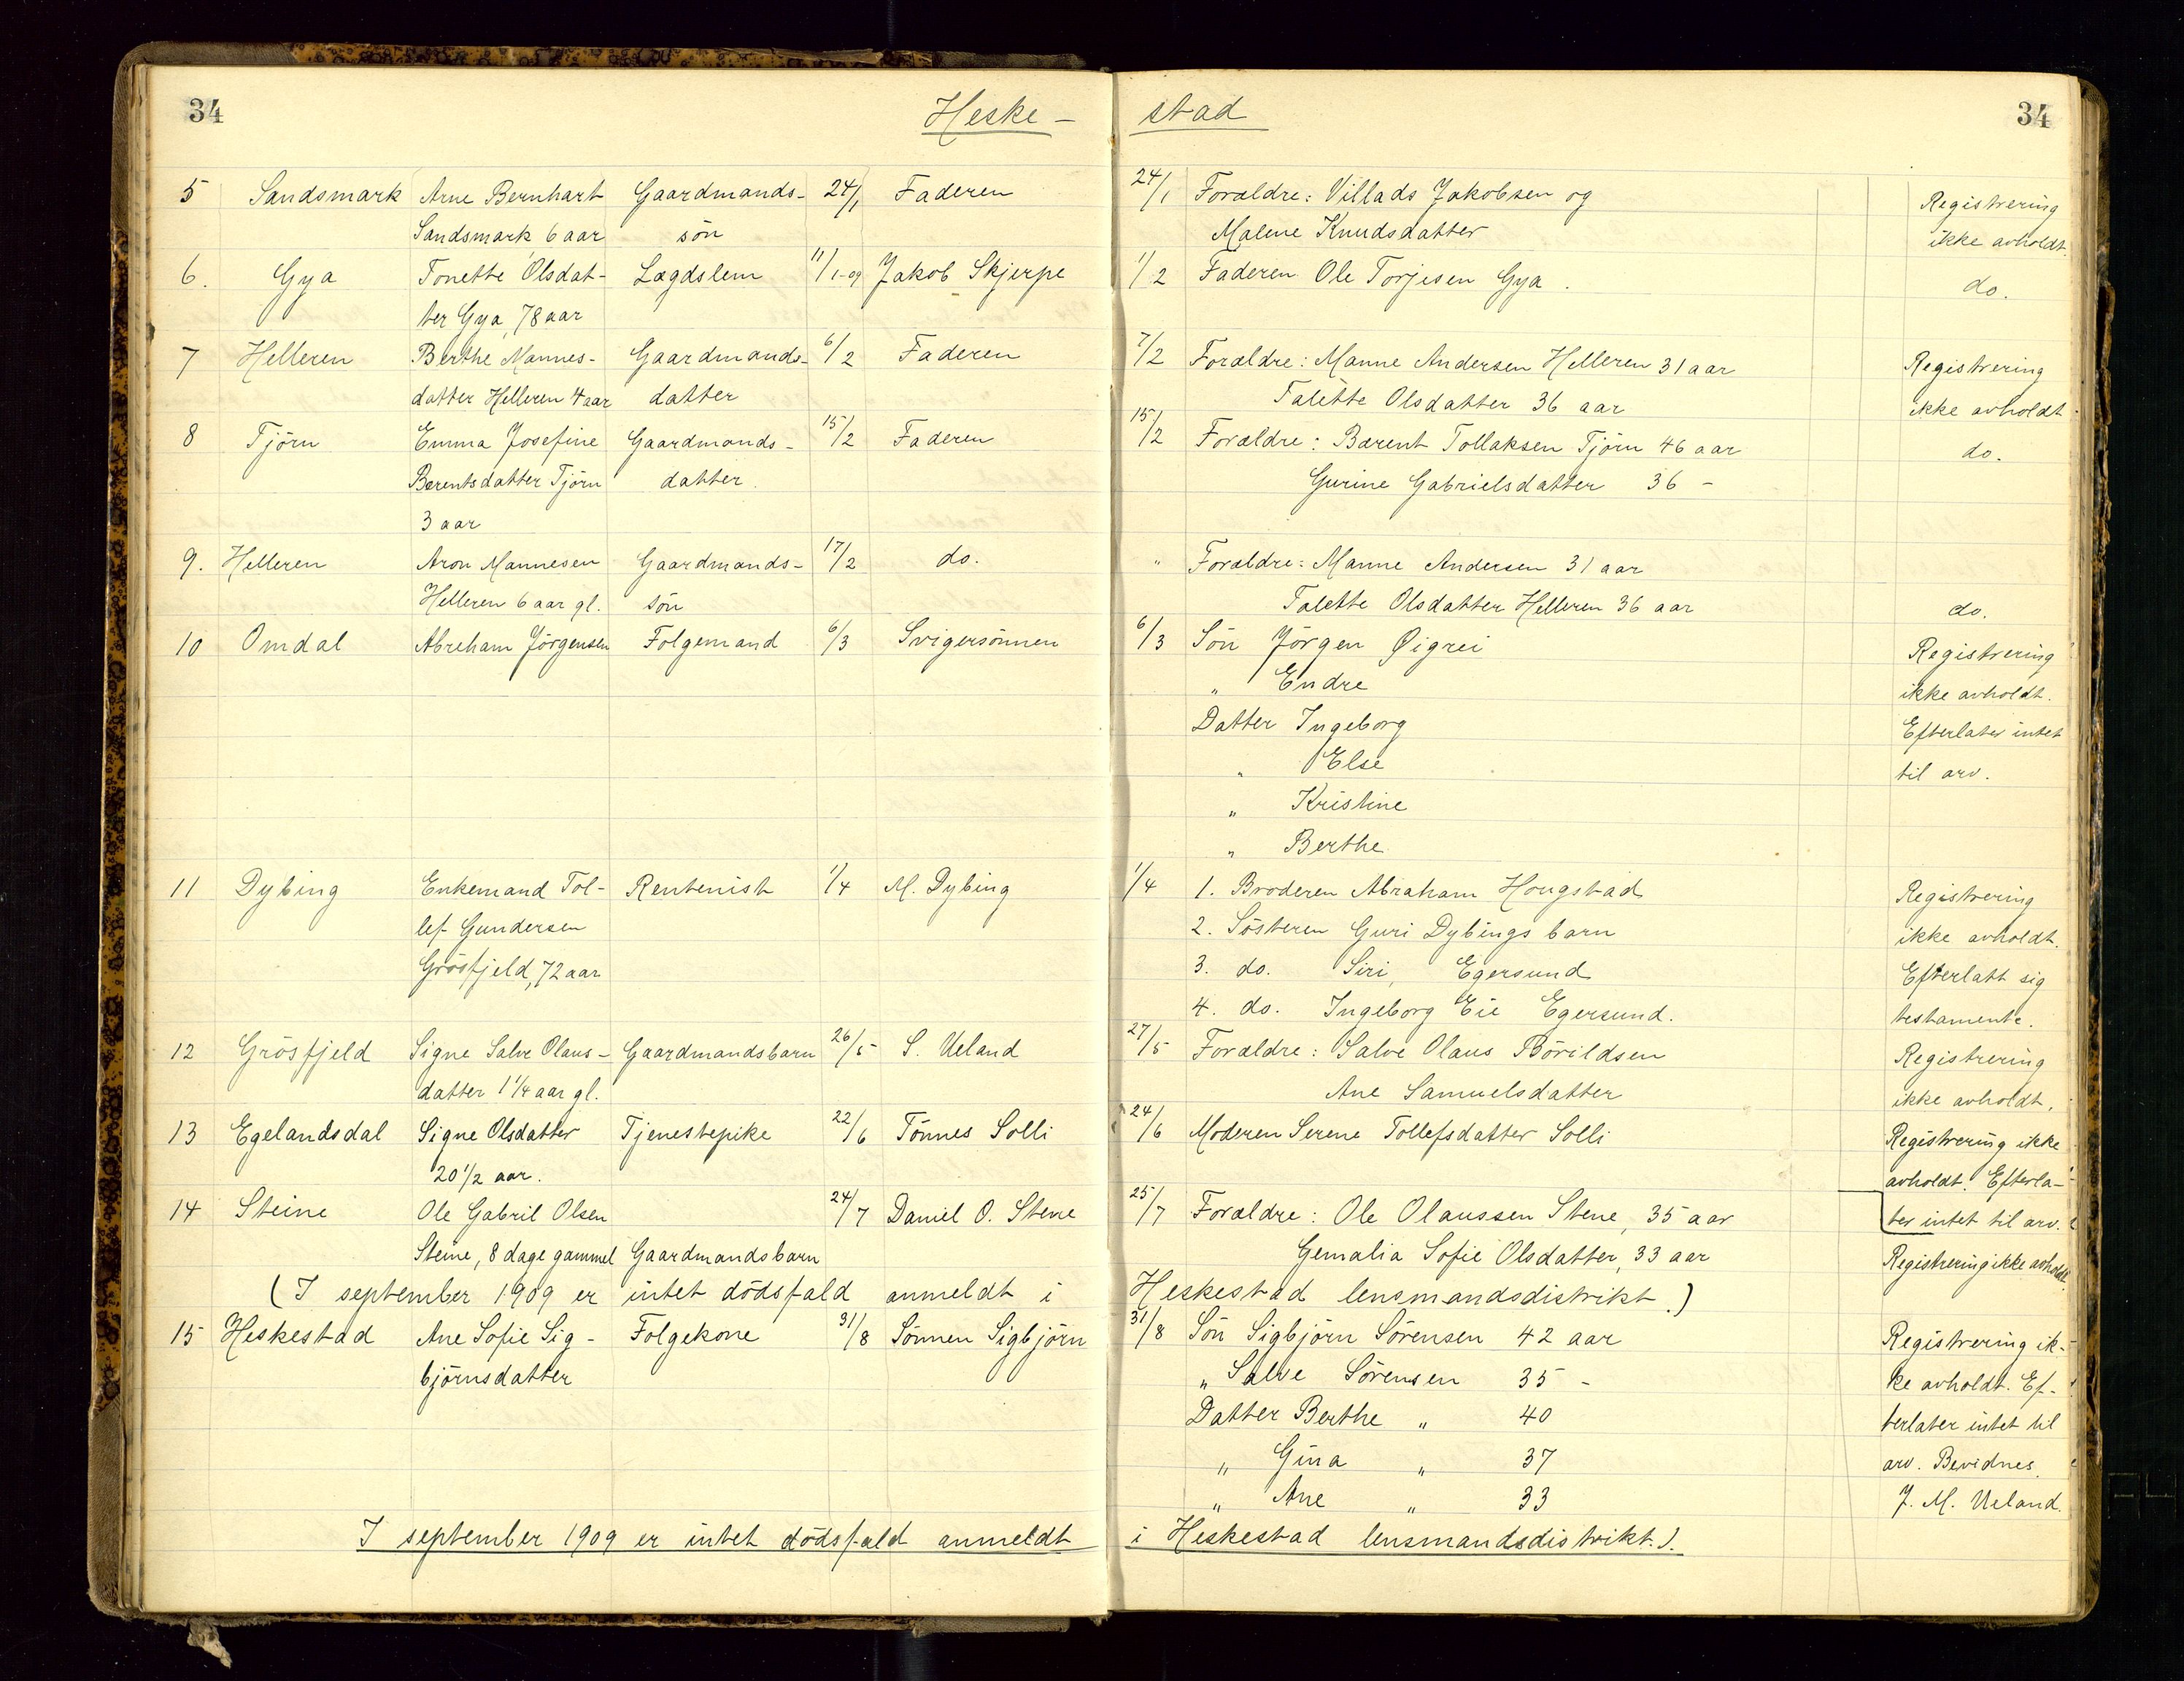 34 Heske- stad 34
5 Sandsmark Arne Bernhart Gaardmands- 24/1 Faderen 24/1 Forældre: Villads Jakobsen og Registrering
Sandsmark 6 aar sön Malene Knudsdatter ikke avholdt.
6. Gya Tonette Olsdat- Lægdslem 11/1-09 Jakob Skjerpe 1/2 Faderen Ole Torjesen Gya. do.
ter Gya, 78 aar
7 Helleren Berthe Mannes- Gaardmands- 6/2 Faderen 7/2 Forældre: Manne Andersen Helleren 31 aar Registrering
datter Helleren 4 aar datter Talette Olsdatter 36 aar ikke avholdt.
8 Tjörn Emma Josefine Gaardmands- 15/2 Faderen 15/2 Forældre: Bærent Tollaksen Tjörn 46 aar do.
Bærentsdatter Tjörn datter. Gurine Gabrielsdatter 36 -
3 aar
9. Helleren Aron Mannesen Gaardmands- 17/2 do. " Forældre: Manne Andersen 31 aar
Helleren 6 aar gl. sön Talette Olsdatter Helleren 36 aar do.
10 Omdal Abraham Jörgensen Folgemand 6/3 Svigersönnen 6/3 Sön Jörgen Øigrei Registrering
" Endre ikke avholdt.
Datter Ingeborg Efterlater intet
" Else til arv.
" Kristine
" Berthe
11 Dybing Enkemand Tol- Rentenist 1/4 M. Dybing 1/4 1. Broderen Abraham Hougstad Registrering
lef Gundersen 2. Sösteren Guri Dybings barn ikke avholdt.
Grösfjeld, 72 aar 3. do. Siri, Egersund Efterlatt sig
4. do. Ingeborg Eie Egersund. testamente.
12 Grösfjeld Signe Salve Olaus- Gaardmandsbarn 26/5 S. Ueland 27/5 Forældre: Salve Olaus Börildsen Registrering
datter 1 1/4 aar gl. Ane Samuelsdatter ikke avholdt.
13 Egelandsdal Signe Olsdatter Tjenestepike 22/6 Tönnes Solli 24/6 Moderen Serene Tollefsdatter Solli Registrering ikke
20 1/2 aar. avholdt. Efterla-
14 Steine Ole Gabril Olsen 24/7 Daniel O. Stene 25/7 Forældre: Ole Olaussen Stene, 35 aar ter intet til arv.
Steine, 8 dage gammel Gaardmandsbarn Gemalia Sofie Olsdatter, 33 aar Registrering ikke avholdt.
(I september 1909 er intet dödsfald anmeldt i Heskestad lensmandsdistrikt.)
15 Heskestad Ane Sofie Sig- Folgekone 31/8 Sönnen Sigbjörn 31/8 Sön Sigbjörn Sörensen 42 aar Registrering ik-
björnsdatter " Salve Sörensen 35 - ke avholdt. Ef-
Datter Berthe " 40 terlater intet til
" Gina " 37 arv. Bevidnes.
" Ane " 33 J. M. Ueland.
I september 1909 er intet dödsfald anmeldt i Heskestad lensmandsdistrikt.).